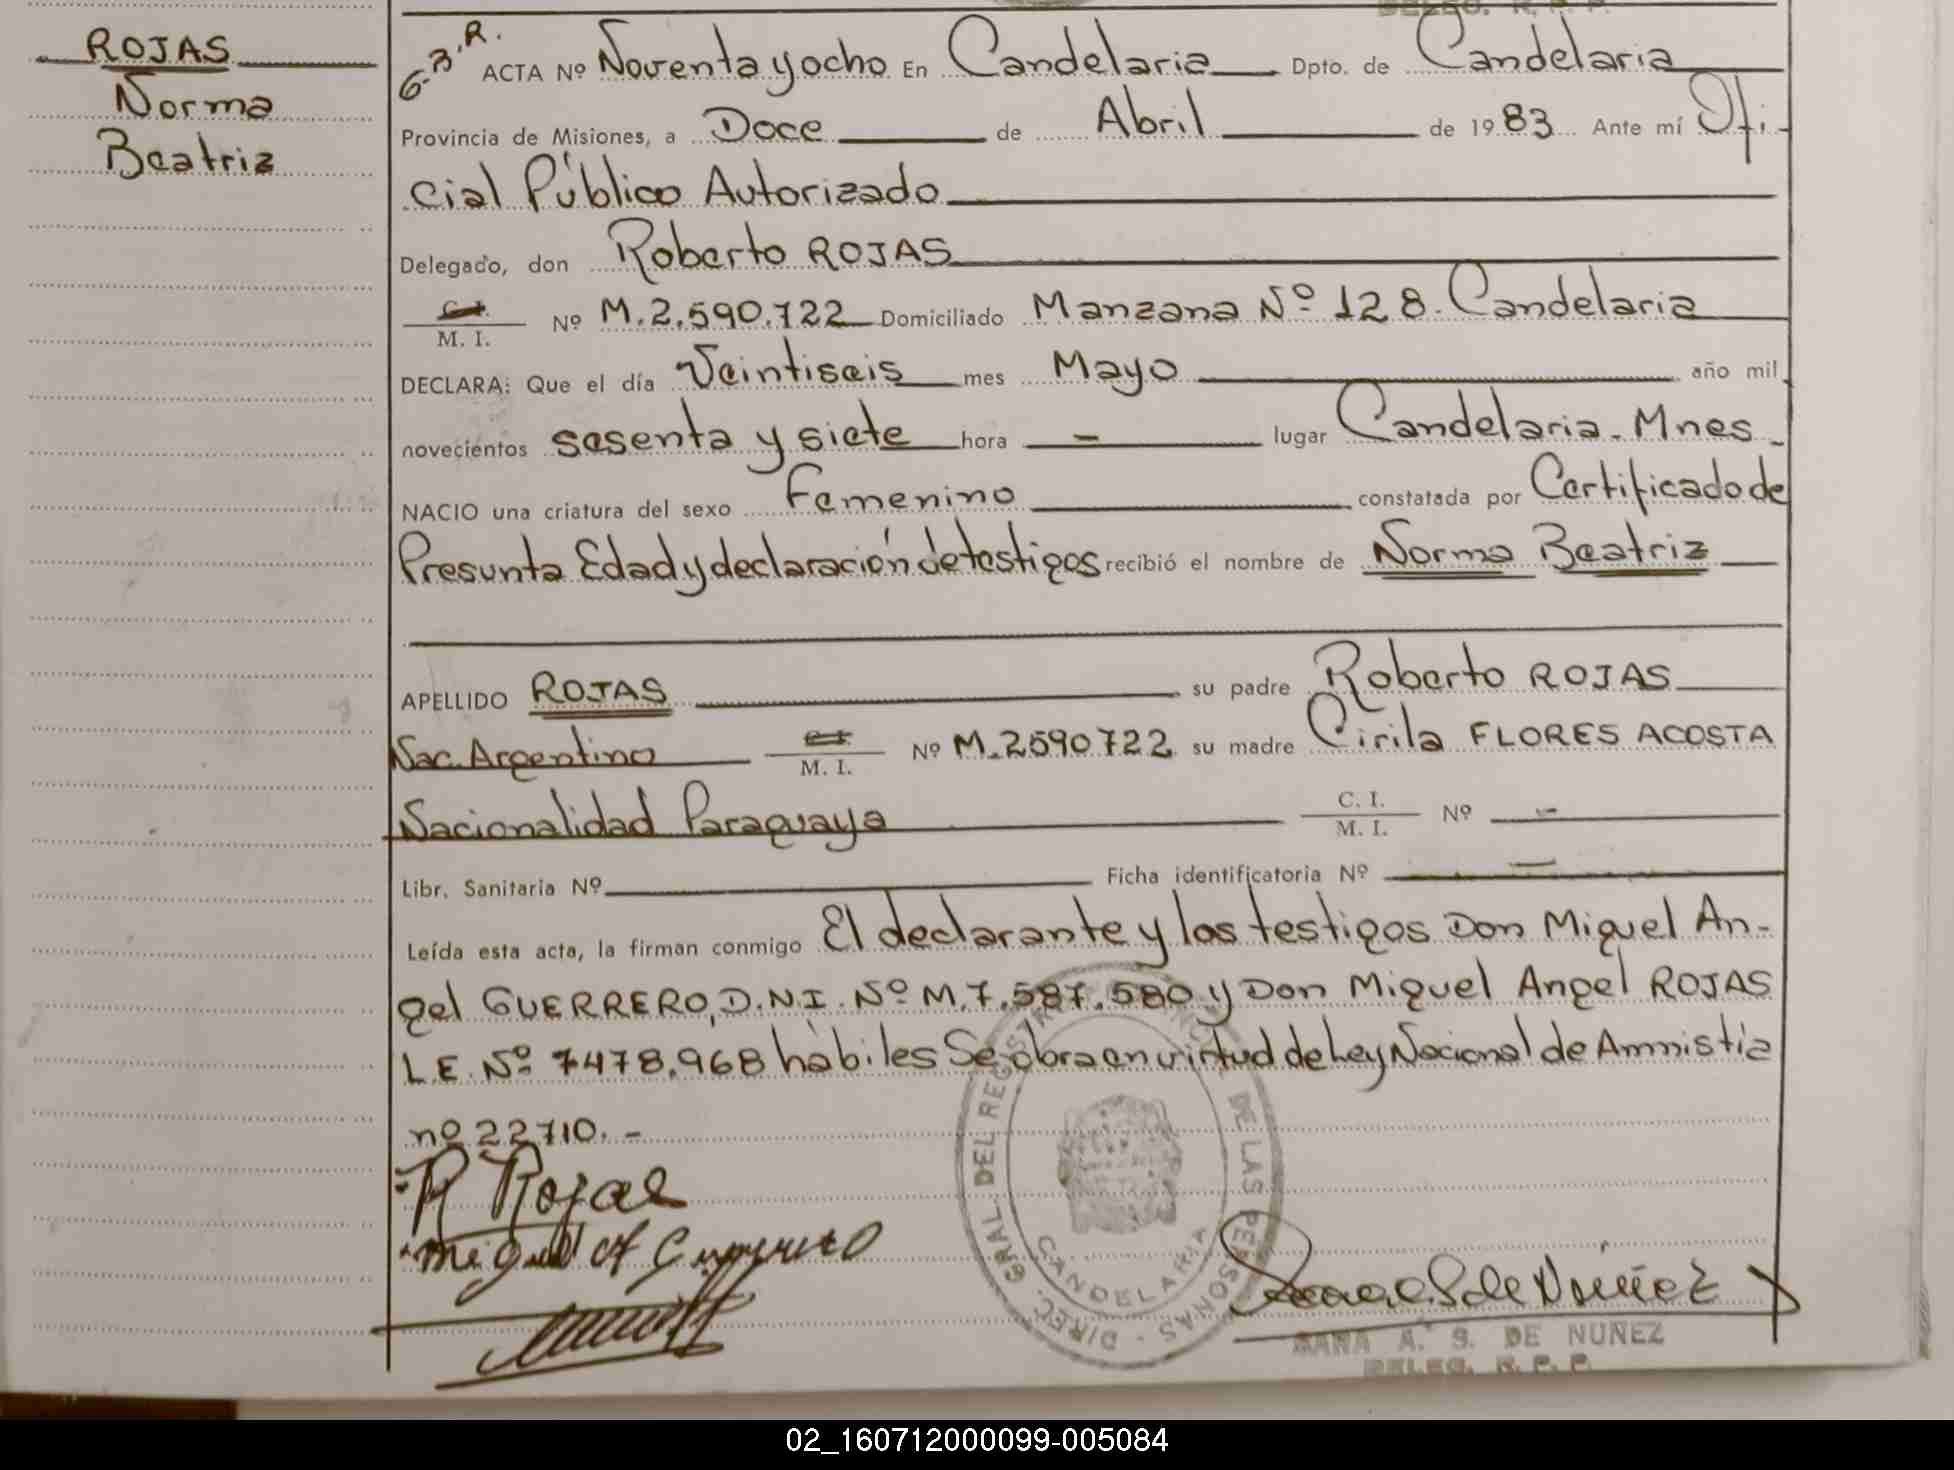 ROJAS
Norma
Beatriz
G.B.R.
ACTA Nº Noventa y ocho En Candelaria Dpto. de Candelaria
Provincia de Misiones, a Doce de Abril de 1983 Ante mí Ofi-
cial Público Autorizado
Delegado, don Roberto ROJAS
C.I.
M. I. Nº M.2.590.722 Domiciliado Manzana Nº 128. Candelaria
DECLARA: Que el día Veintiseis mes Mayo año mil
novecientos sesenta y siete hora - lugar Candelaria - Mnes
NACIO una criatura del sexo Femenino constatada por Certificado de
Presunta Edad y declaración de testigos recibió el nombre de Norma Beatriz
APELLIDO ROJAS su padre Roberto ROJAS
Nac. Argentino M. I. Nº M.2590722 su madre Cirila FLORES ACOSTA
Nacionalidad Paraguaya C. I. M. I. Nº -
Libr. Sanitaria Nº Ficha identificatoria Nº -
Leída esta acta, la firman conmigo El declarante y los testigos Don Miguel An-
gel GUERRERO, D.N.I. Nº M.7.587.580 y Don Miguel Angel ROJAS
L.E. Nº 7478.968 hábiles Se obra en virtud de Ley Nacional de Amnistia
nº 22710. -
R Rojas
Miguel A Guerrero
DIREC. GRAL. DEL REGISTRO DE LAS PERSONAS
CANDELARIA
S de Núñez
SARA A. S. DE NUÑEZ
DELEG. R. P. P.
02_160712000099-005084